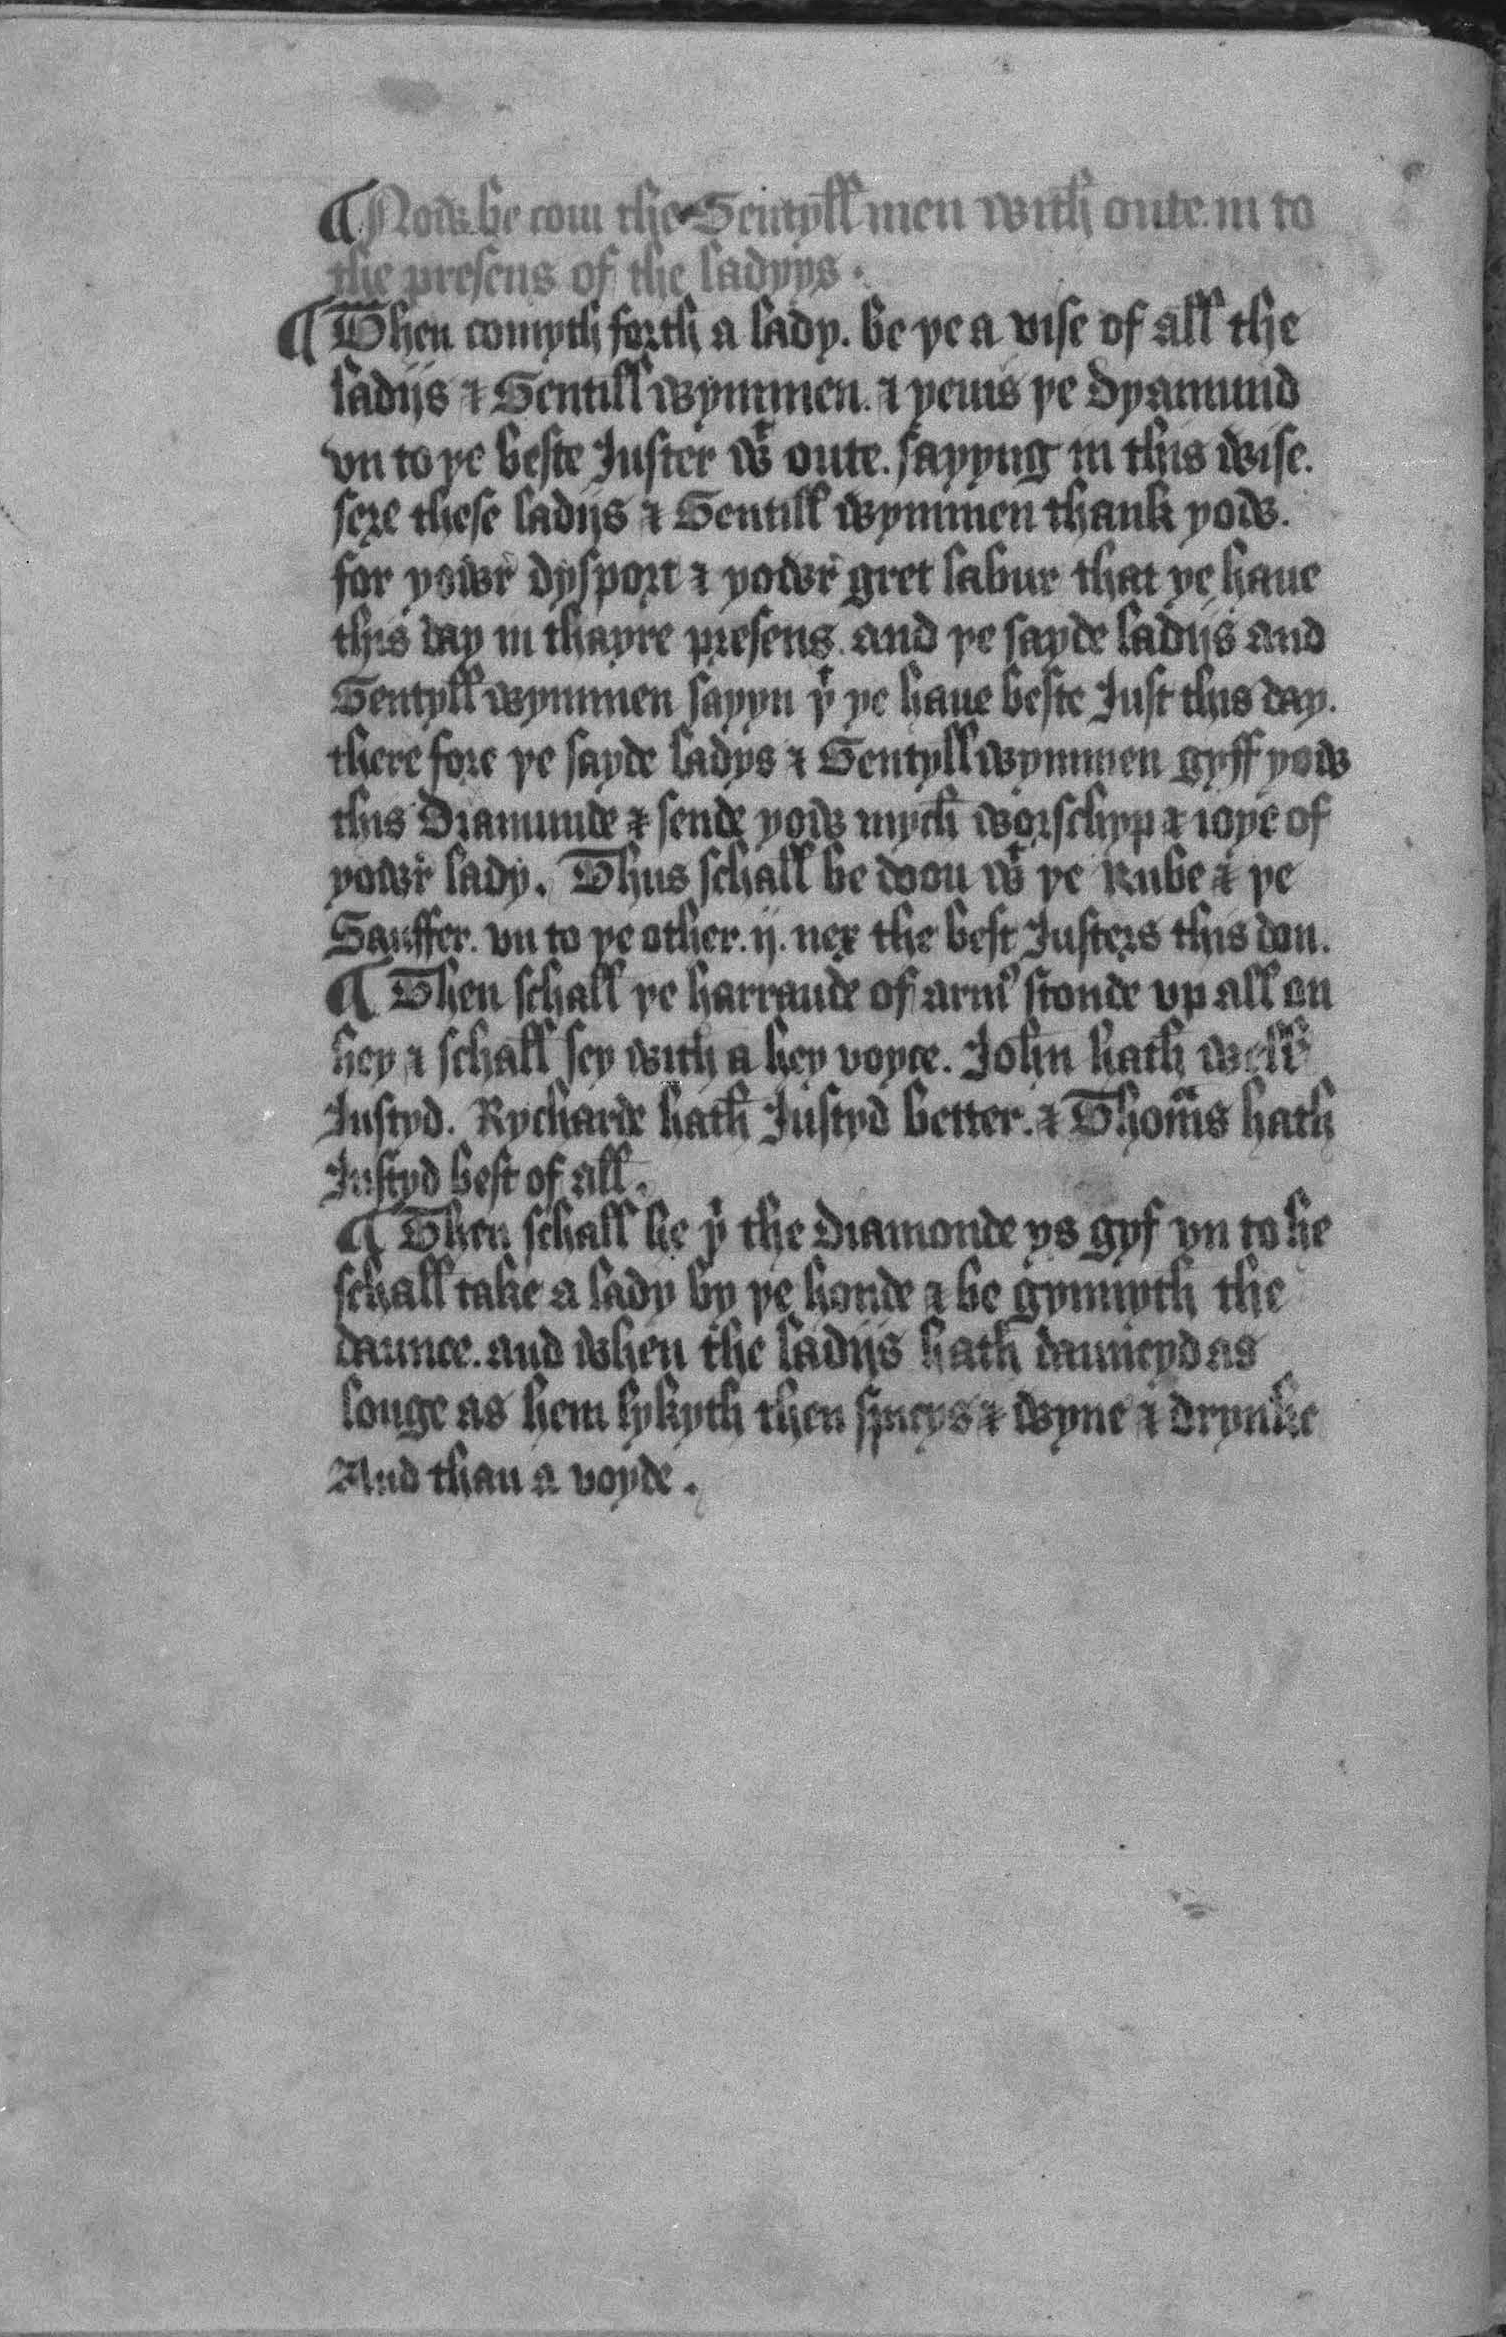 ¶ Now be com the Gentyll men with oute in to
the presens of the ladyys.
¶ Then comyth forth a lady. be þe a vise of all the
ladijs & Gentill wymmen. & yeuis þe Dyamund
vn to þe beste Juster wt oute. sayyng in this wise.
sere these ladijs & Gentill wymmen thank yow.
for yowr dysport & yowr gret labur that ye haue
this day in thayre presens. and þe sayde ladijs and
Gentyll wymmen sayyn þt ye haue beste Just this day.
there fore þe sayde ladys & Gentyll wymmen gyff yow
this Diamunde & sende yow mych worschyp & ioye of
yowr lady. Thus schall be doon wt þe Rube & þe
Sauffer. vn to þe other. ij. nex the best Justers this don.
¶ Then schall þe harraude of arms stonde vp all on
hey & schall sey with a hey voyce. John hath well
Justyd. Rycharde hath Justyd better. & Thomas hath
Justyd best of all.
¶ Then schall he þt the Diamonde ys gyf vn to he
schall take a lady by þe honde & be gynnyth the
daunce. and when the ladijs hath dauncyd as
longe as hem lykyth then spicys & wyne & drynke
And than a voyde.